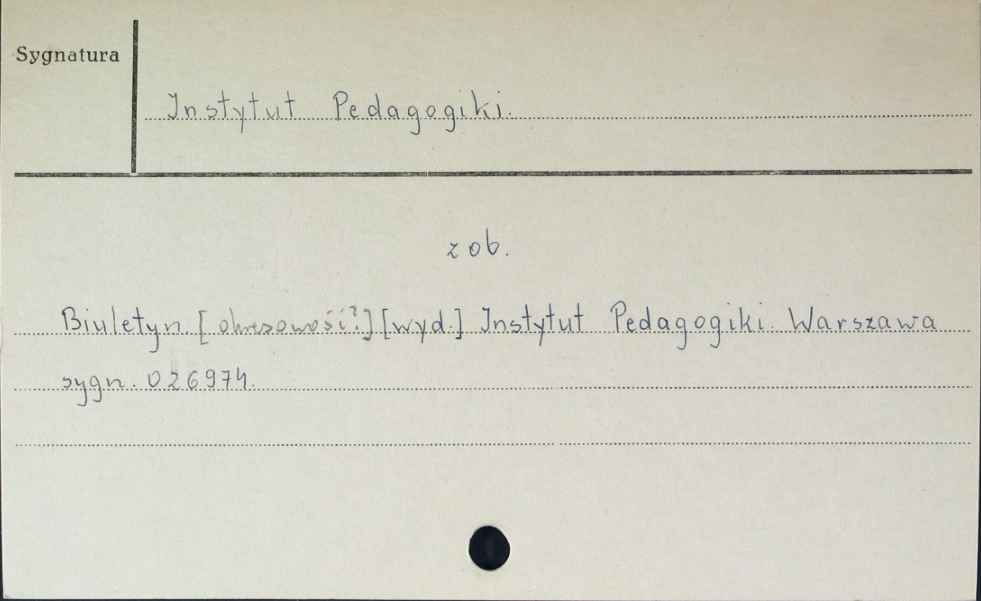 Sygnatura
Instytut Pedagogiki.
zob.
Biuletyn. [okresowość?] [wyd.] Instytut Pedagogiki. Warszawa
sygn. 026974.